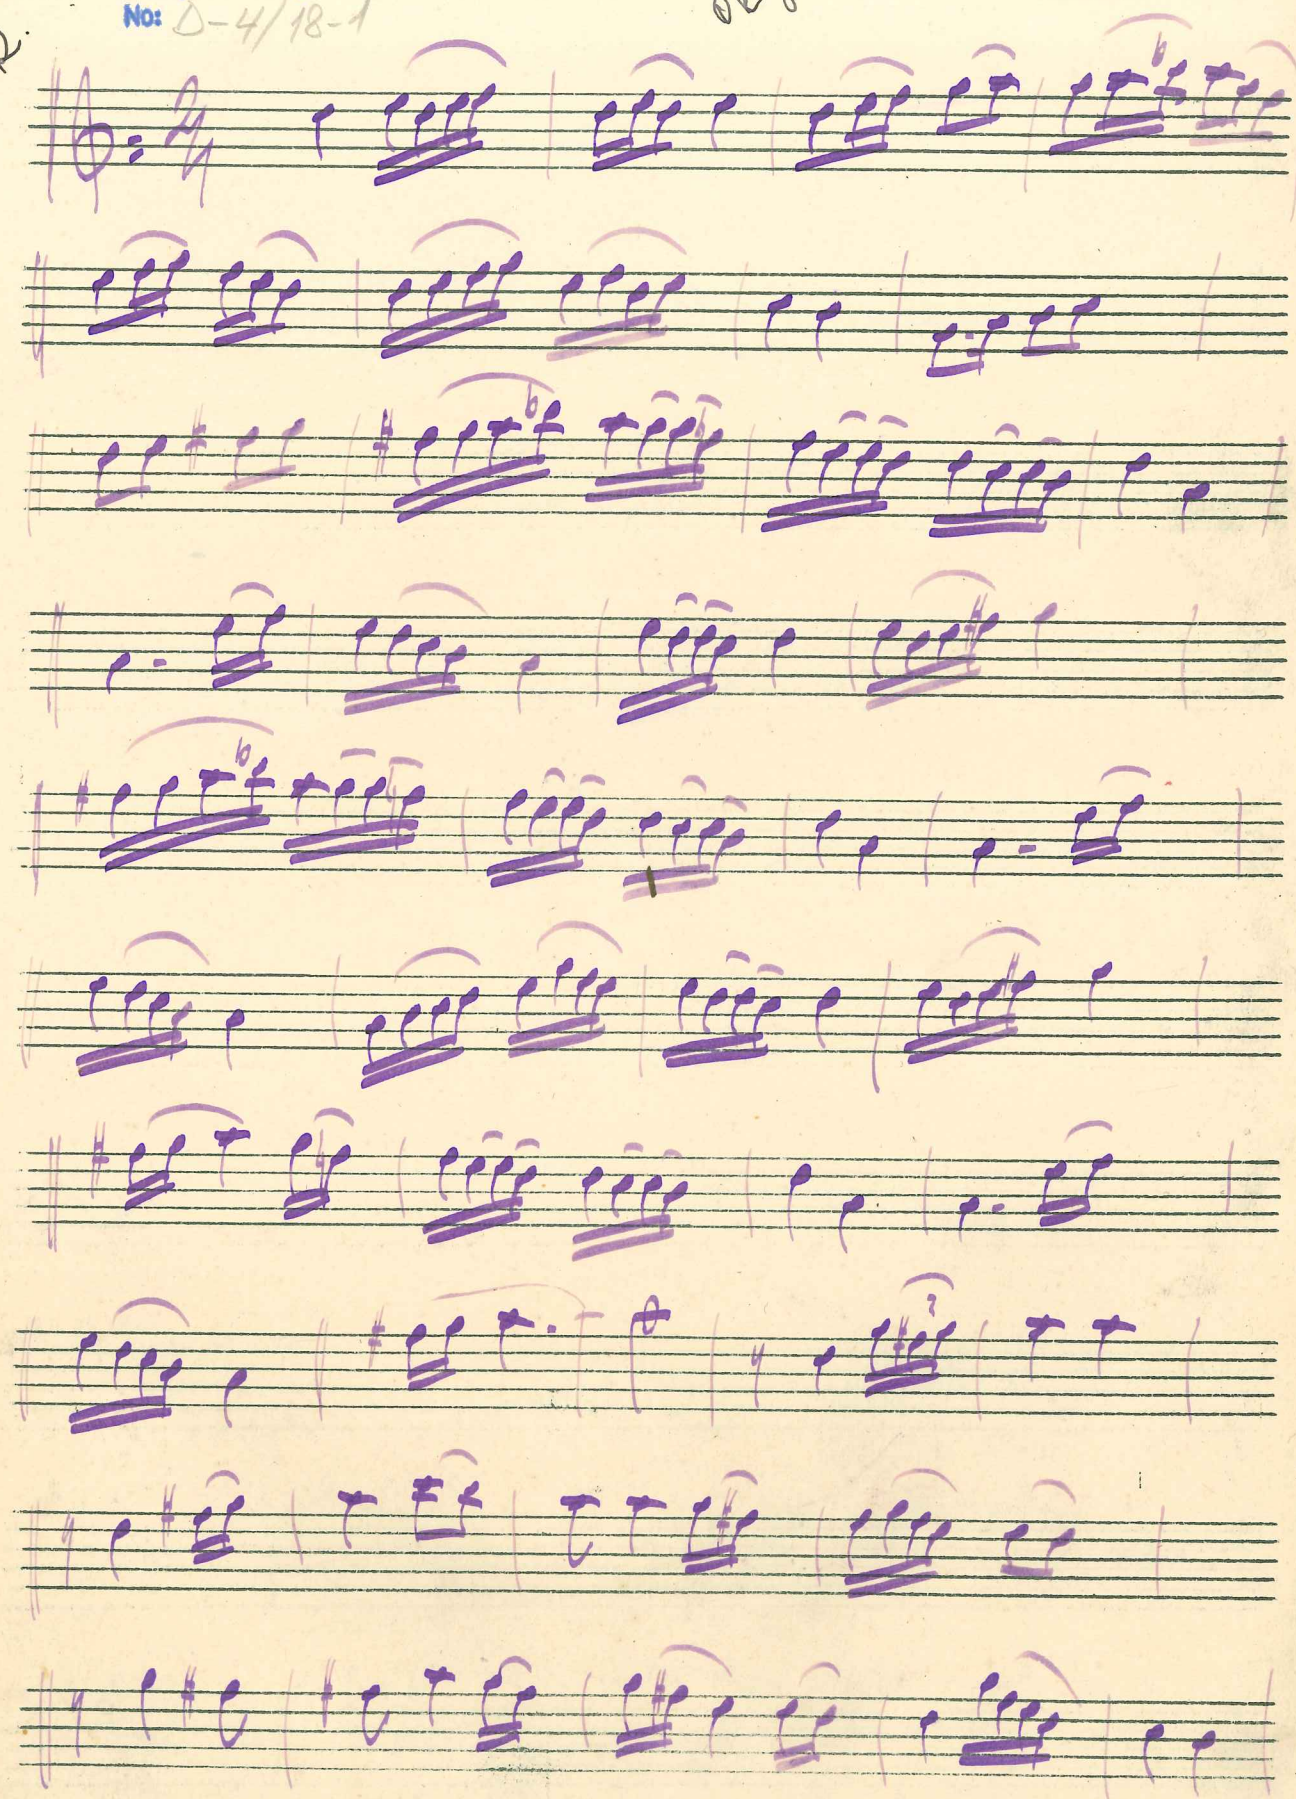 No: D-4/18-1
R.
2/4